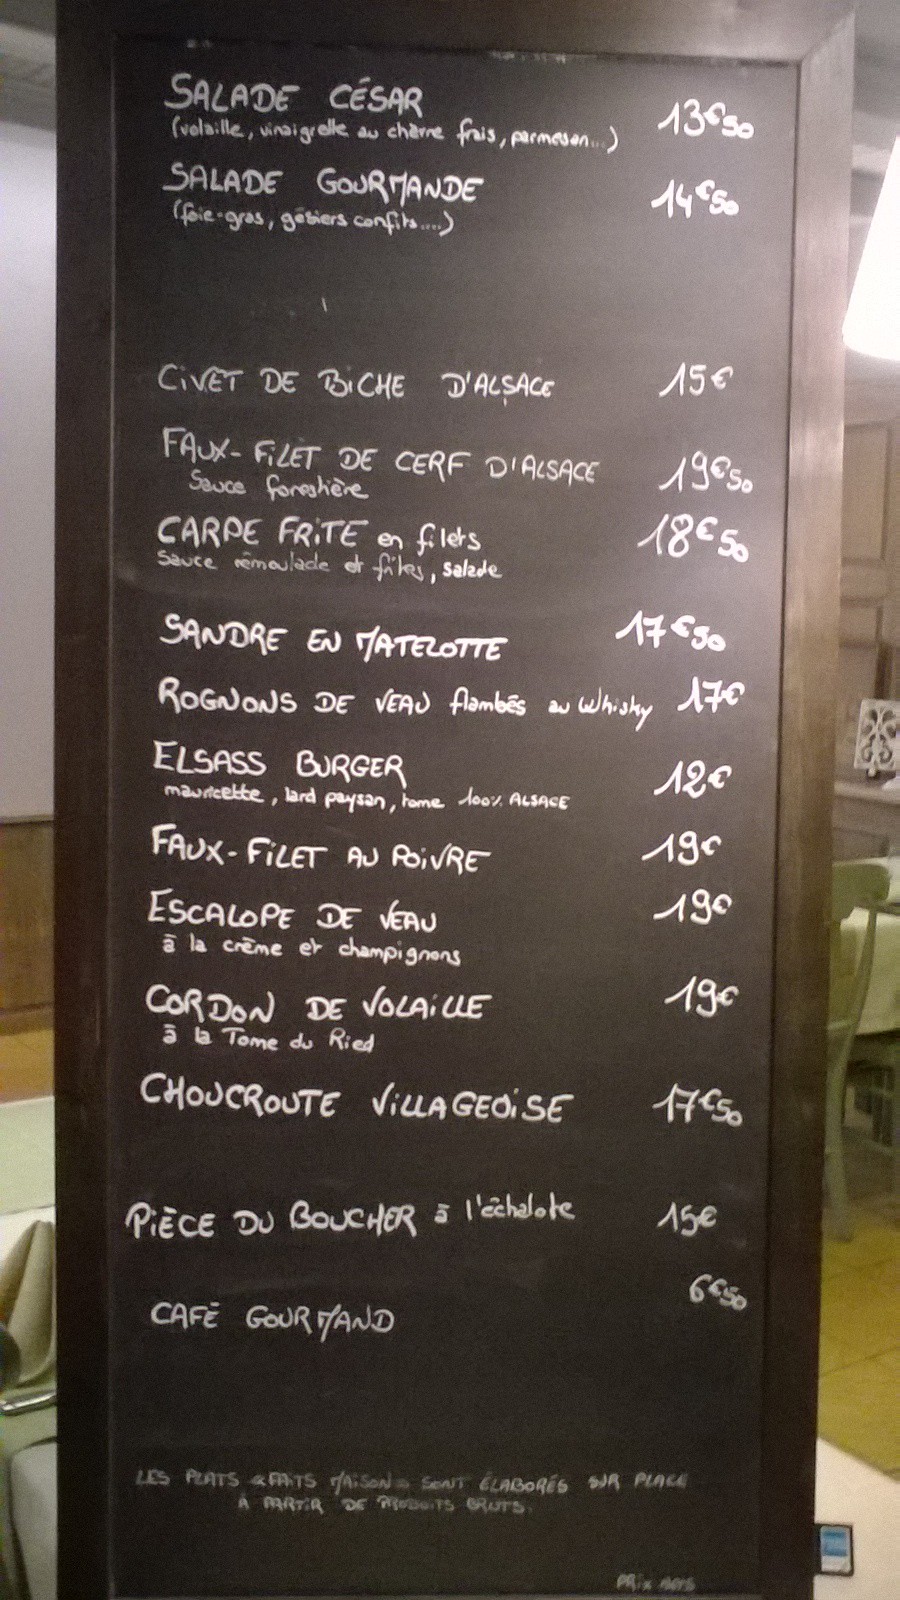 SALADE CÉSAR 13€50
(volaille, vinaigrette au chèvre frais, parmesan...)
SALADE GOURMANDE 14€50
(foie-gras, gésiers confits....)
CIVET DE BICHE D'ALSACE 15€
FAUX-FILET DE CERF D'ALSACE 19€50
Sauce forestière
CARPE FRITE en filets 18€50
Sauce rémoulade et frites, salade
SANDRE EN MATELOTTE 17€50
ROGNONS DE VEAU flambés au Whisky 17€
ELSASS BURGER 12€
mauricette, lard paysan, tome 100% ALSACE
FAUX-FILET AU POIVRE 19€
ESCALOPE DE VEAU 19€
à la crème et champignons
CORDON DE VOLAILLE 19€
à la Tome du Ried
CHOUCROUTE VILLAGEOISE 17€50
PIÈCE DU BOUCHER à l'échalote 15€
CAFÉ GOURMAND 6€50
LES PLATS «FAITS MAISON» SONT ÉLABORÉS SUR PLACE
À PARTIR DE PRODUITS BRUTS.
PRIX NETS